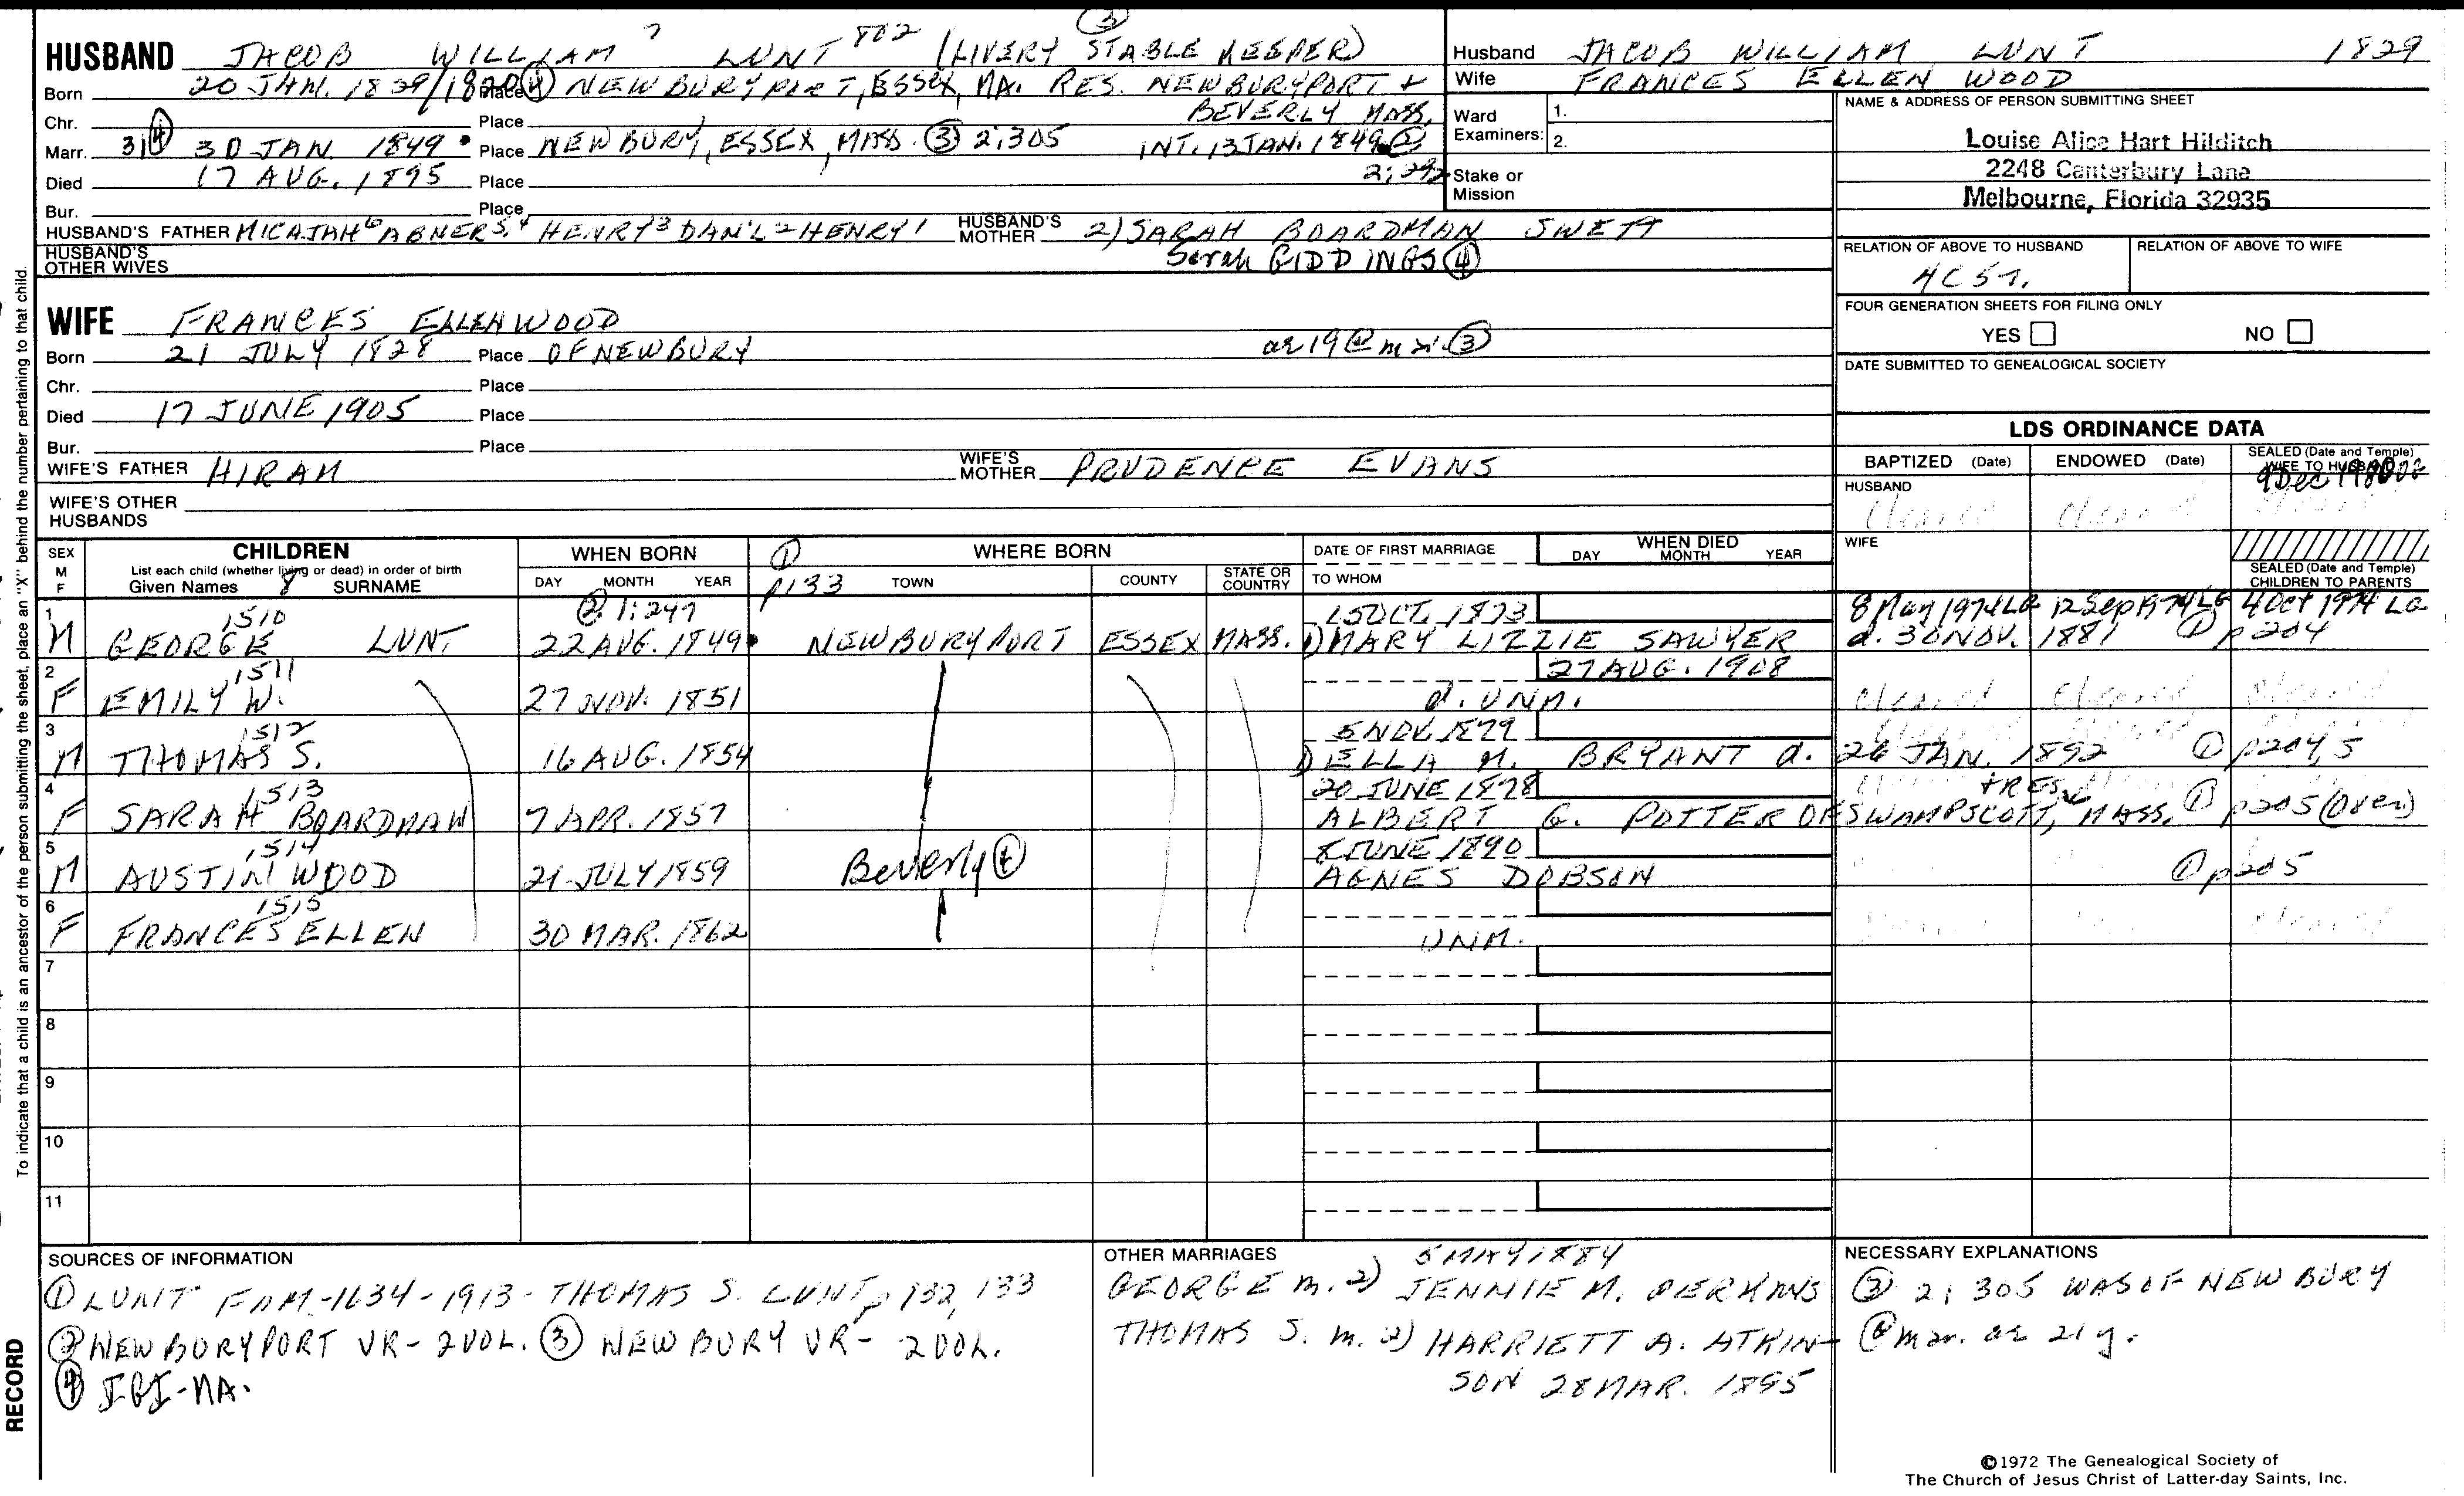 HUSBAND JACOB WILLIAM 7 LUNT 802 (LIVERY STABLE KEEPER) ③
Born 20 JAN. 1829/1828 ④ Place NEWBURYPORT, ESSEX, MA. RES. NEWBURYPORT &
BEVERLY MASS.
Chr. Place
Marr. 3,④ 30 JAN 1849 • Place NEWBURY, ESSEX, MASS. ③ 2:305 INT. 13 JAN. 1849 ②
2:292
Died 17 AUG. 1895 Place
Bur. Place
HUSBAND'S FATHER MICAJAH 6 ABNER 5,4 HENRY 3 DAN'L 2 HENRY 1 HUSBAND'S MOTHER 2) SARAH BOARDMAN SWETT
HUSBAND'S OTHER WIVES Sarah GIDDINGS ④
WIFE FRANCES ELLEN WOOD
Born 21 JULY 1828 Place OF NEWBURY ae 19 @ m ③
Chr. Place
Died 17 JUNE 1905 Place
Bur. Place
WIFE'S FATHER HIRAM WIFE'S MOTHER PRUDENCE EVANS
WIFE'S OTHER HUSBANDS
Husband JACOB WILLIAM LUNT 1829
Wife FRANCES ELLEN WOOD
Ward Examiners: 1.
2.
Stake or Mission
NAME & ADDRESS OF PERSON SUBMITTING SHEET
Louise Alice Hart Hilditch
2248 Canterbury Lane
Melbourne, Florida 32935
RELATION OF ABOVE TO HUSBAND RELATION OF ABOVE TO WIFE
4C 5
FOUR GENERATION SHEETS FOR FILING ONLY
YES NO
DATE SUBMITTED TO GENEALOGICAL SOCIETY
LDS ORDINANCE DATA
BAPTIZED (Date) ENDOWED (Date) SEALED (Date and Temple) WIFE TO HUSBAND
9 Dec
HUSBAND
Cleared Cleared
WIFE
SEALED (Date and Temple) CHILDREN TO PARENTS
SEX M F CHILDREN WHEN BORN ① WHERE BORN DATE OF FIRST MARRIAGE WHEN DIED
List each child (whether living or dead) in order of birth
Given Names 8 SURNAME DAY MONTH YEAR p133 TOWN COUNTY STATE OR COUNTRY TO WHOM DAY MONTH YEAR
1 1510 ② 1:247 15 OCT. 1873 8 May 1974 LG 12 Sep 1974 LG 4 Oct 1974 LG
M GEORGE LUNT 22 AUG. 1849 • NEWBURYPORT ESSEX MASS. 1) MARY LIZZIE SAWYER d. 30 NOV. 1881 ① p 204
2 1511 27 AUG. 1908
F EMILY W. 27 NOV. 1851 d. UNM. Cleared Cleared Cleared
3 1512 5 NOV. 1879
M THOMAS S. 16 AUG. 1854 1) ELLA M. BRYANT d. 26 JAN. 1892 ① p204,5
4 1513 20 JUNE 1878 + RES.
F SARAH BOARDMAN 7 APR. 1857 ALBERT G. POTTER OF SWAMPSCOTT, MASS. ① p205 (Over)
5 1514 8 JUNE 1890
M AUSTIN WOOD 21 JULY 1859 Beverly ④ AGNES DOBSON ① p205
6 1515
F FRANCES ELLEN 30 MAR. 1862 UNM.
7
8
9
10
11
SOURCES OF INFORMATION
① LUNT FAM-1634-1913- THOMAS S. LUNT, p 132, 133
② NEWBURYPORT VR- 2 VOL. ③ NEWBURY VR- 2 VOL.
④ IGI-MA.
OTHER MARRIAGES
5 MAY 1884
GEORGE m. 2) JENNIE M. PERKINS
THOMAS S. m. 2) HARRIETT A. ATKIN-
SON 28 MAR. 1895
NECESSARY EXPLANATIONS
③ 2: 305 WAS OF NEWBURY
@ mar. ae 21 y.
©1972 The Genealogical Society of
The Church of Jesus Christ of Latter-day Saints, Inc.
To indicate that a child is an ancestor of the person submitting the sheet, place an "X" behind the number pertaining to that child.
RECORD